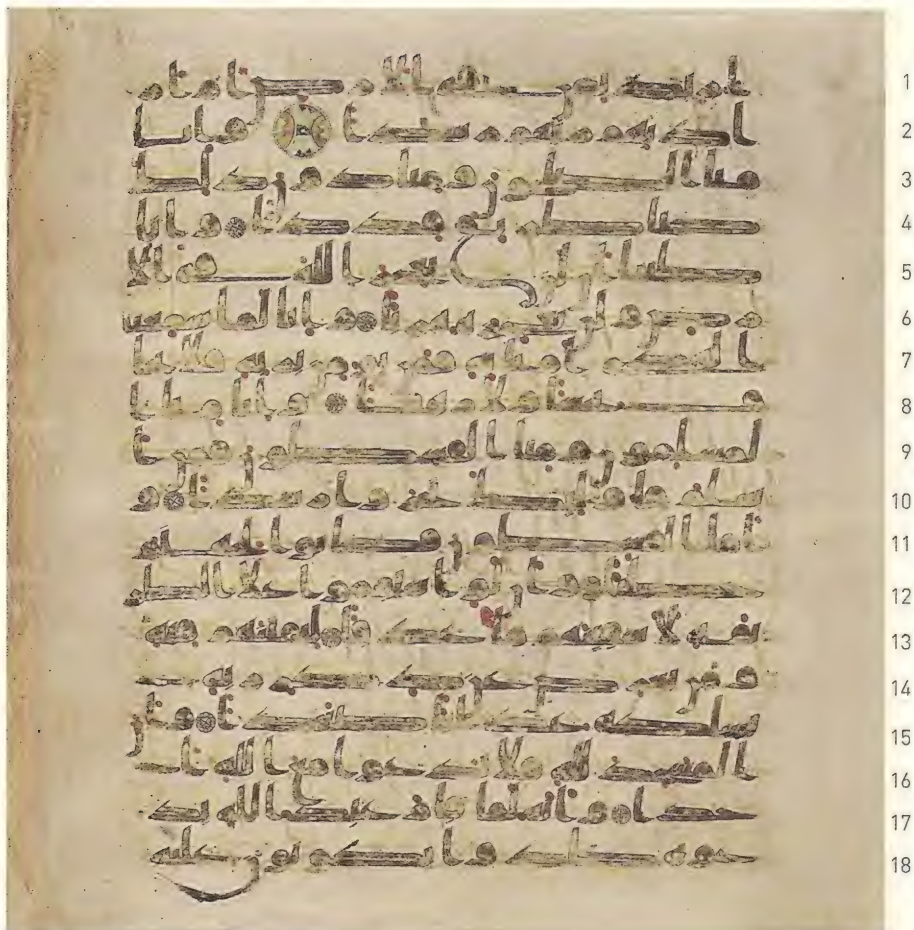 1 اريد بمن فى الارض ام ار
2 اد بهم ربهم رشدا وانا
3 منا الصلحون ومنا دون ذلك
4 كنا طرىق قددا وانا
5 ظننا ان لن نعجز الله فى الا
6 رض ولن نعجزه هربا وانا لما سمعنا
7 الهدى امنا به فمن يومن بربه فلا يخا
8 ف بخسا ولا رهقا وانا منا ا
9 لمسلمون ومنا القسطون فمن ا
10 سلم فاوليك تحروا رشدا و
11 اما القسطون فكانوا لجهنم
12 حطبا وان لو استقموا على الطر
13 يقه لاسقينهم ما غدقا لنفتنهم فيه
14 ومن يعرض عن ذكر ربه
15 يسلكه عذابا صعدا وان
16 المسجد لله فلا تدعوا مع الله ا
17 حدا وانه لما قام عبد الله يد
18 عوه كادوا يكونون عليه